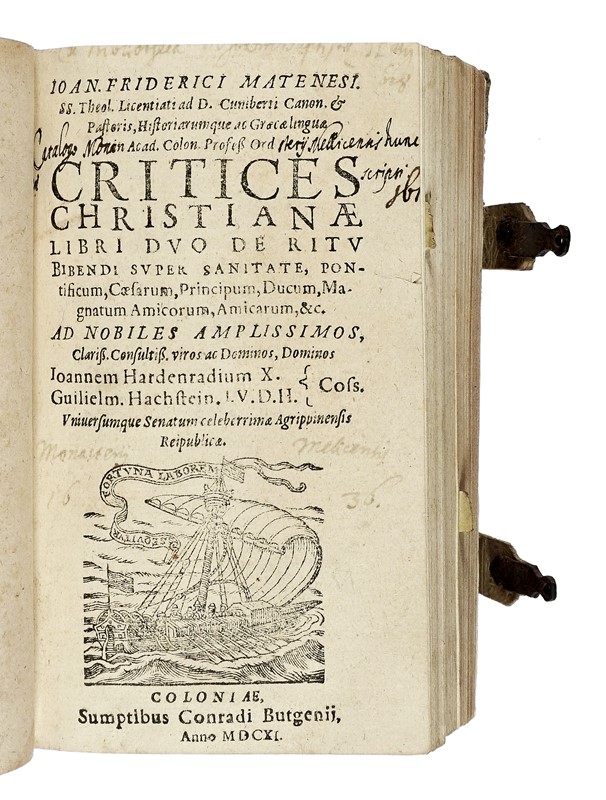 IOAN. FRIDERICI MATENESI.
SS. Theol. Licentiati ad D. Cuniberti Canon. &
Pastoris, Historiarumque ac Græcæ linguæ
Catalogo in Acad. Colon. Profess Ord hunc
CRITICES
scripti
CHRISTIANÆ
LIBRI DVO DE RITV
BIBENDI SVPER SANITATE, PON-
tificum, Cæsarum, Principum, Ducum, Ma-
gnatum Amicorum, Amicarum, &c.
AD NOBILES AMPLISSIMOS,
Clariss. Consultiss. viros ac Dominos, Dominos
Ioannem Hardenradium X.
Guilielm. Hachstein. I.V.D.II. } Coss.
Vniuersumque Senatum celeberrimæ Agrippinensis
Reipublicæ.
Monasterii
16 36.
FORTVNA LABOREM
SEQVITVR
COLONIAE,
Sumptibus Conradi Butgenij,
Anno MDCXI.